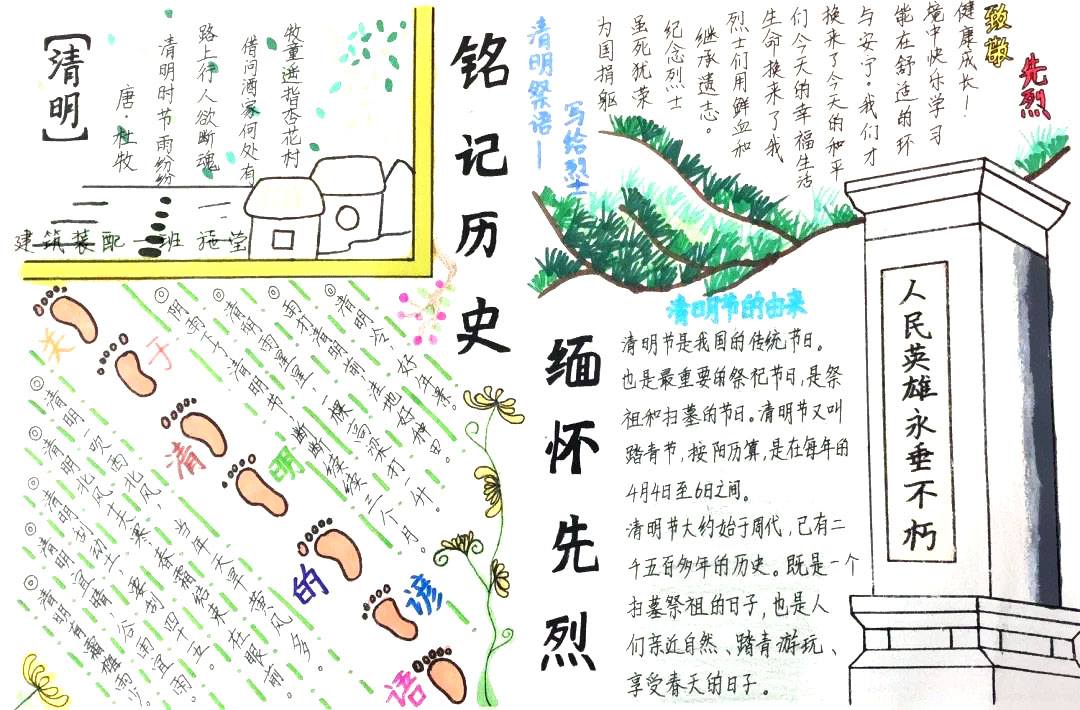 【清明】
唐·杜牧
清明时节雨纷纷
路上行人欲断魂
借问酒家何处有
牧童遥指杏花村
建筑装配一班 施莹
铭记历史
缅怀先烈
清明祭语—
写给烈士
为国捐躯
虽死犹荣
纪念烈士
继承遗志。
烈士们用鲜血和
生命换来了我
们今天的幸福生活
换来了今天的和平
与安宁。我们才
能在舒适的环
境中快乐学习
健康成长！
致敬
先烈
关于清明的谚语
◎清明冷,好年景。
◎雨打清明前,洼地好种田。
◎清明雨星星,一棵高粱打一升。
◎阴雨下了清明节,断断续续三个月。
◎清明一吹西北风,当年天旱黄风多。
◎清明北风十天寒,春霜结束在眼前。
◎清明刮动土,要刮四十五。
◎清明宜晴,谷雨宜雨。
◎清明有霜梅雨少。
清明节的由来
清明节是我国的传统节日。
也是最重要的祭祀节日,是祭
祖和扫墓的节日。清明节又叫
踏青节,按阳历算,是在每年的
4月4日至6日之间。
清明节大约始于周代,已有二
千五百多年的历史。既是一个
扫墓祭祖的日子,也是人
们亲近自然、踏青游玩、
享受春天的日子。
人民英雄永垂不朽